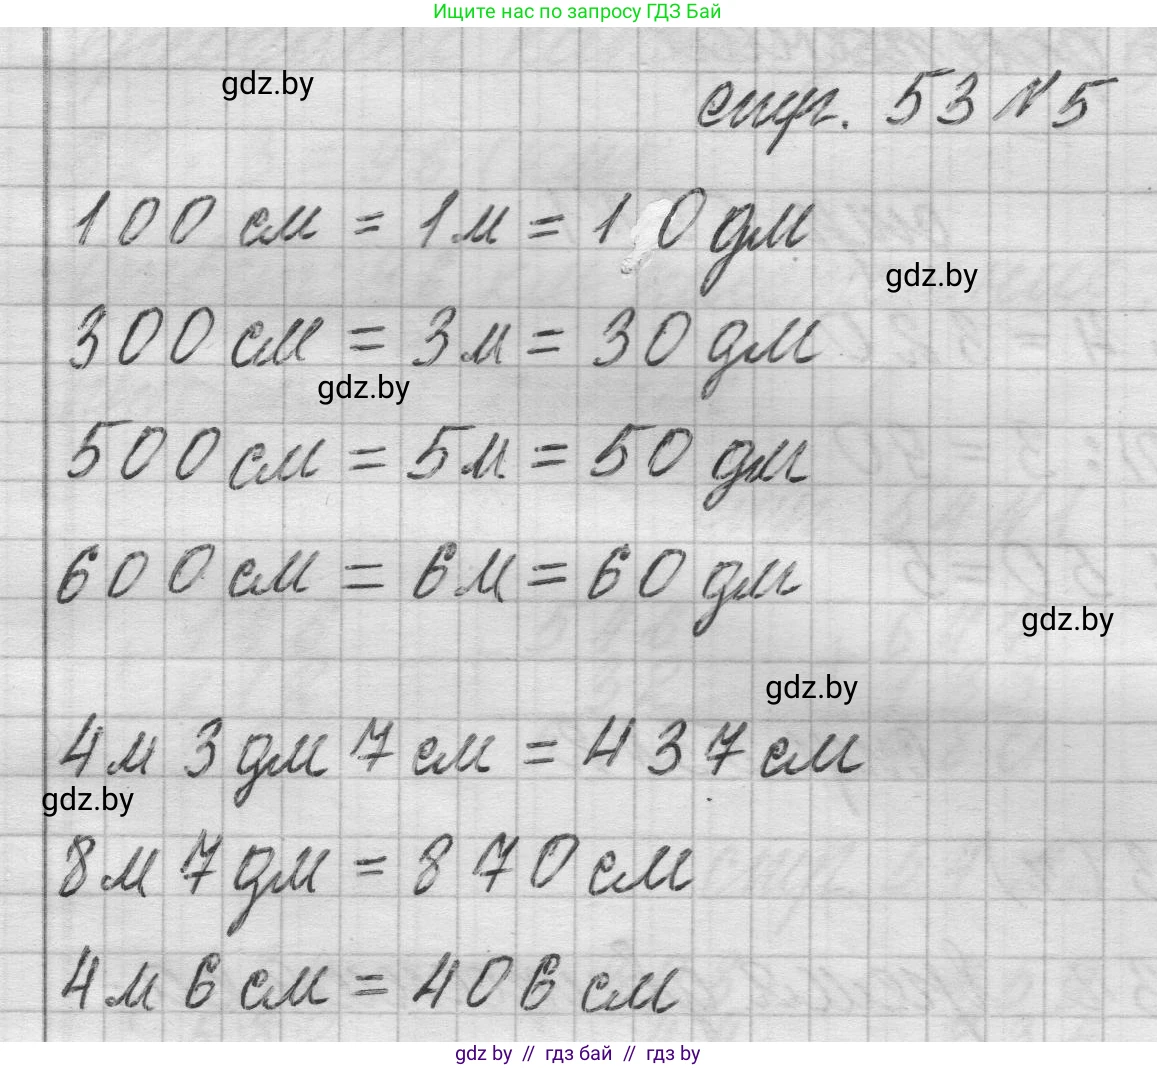 Ищите нас по запросу ГДЗ Бай
gdz.by
стр. 53 № 5
100 см = 1 м = 10 дм
gdz.by
300 см = 3 м = 30 дм
gdz.by
500 см = 5 м = 50 дм
600 см = 6 м = 60 дм
gdz.by
gdz.by
4 м 3 дм 7 см = 437 см
gdz.by
8 м 7 дм = 870 см
4 м 6 см = 406 см
gdz by // гдз бай // гдз by